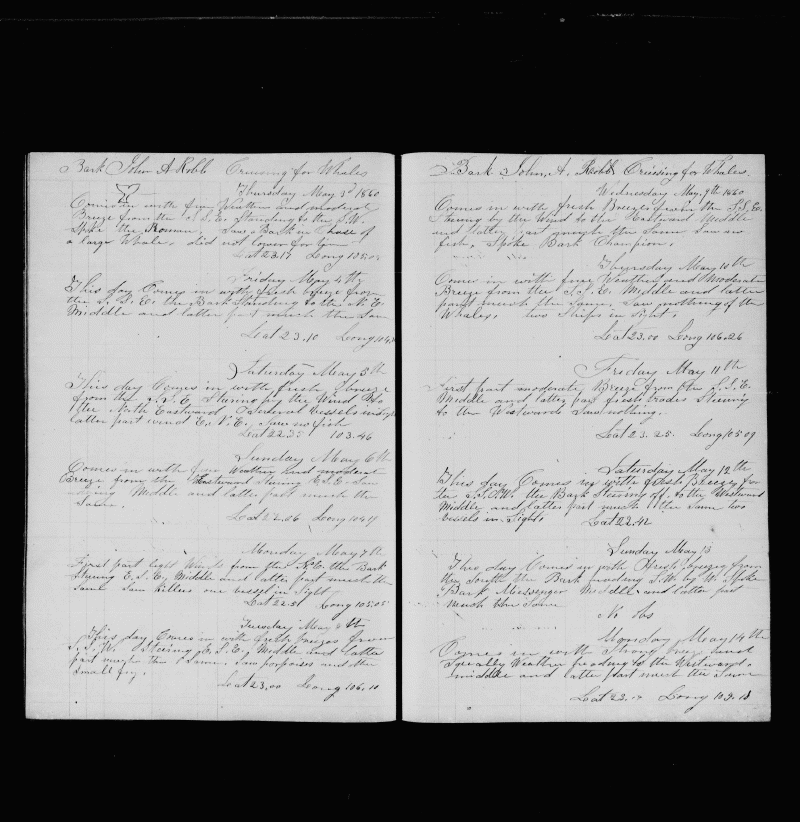 Bark John A Robb Cruising for Whales
Thursday May 3d 1860
Comes in with fine Weather and moderate
Breeze from the S.S.E. Standing to the S.W.
Spoke the Roman. Saw a Bark in Chase of
a large Whale, did not lower for him
Lat 23.17 Long 105.
Friday May 4th
This day Comes in with fresh breeze from
the S.S.E. the Bark Standing to the N.E.
Middle and latter part much the Same
Lat 23.10 Long 104.
Saturday May 5th
This day Comes in with fresh breeze
from the S.S.E. Stering by the Wind to
the North Eastward Several vessels in sight
latter part wind E.N.E. Saw no fish
Lat 22.35 103.46
Sunday May 6th
Comes in with fine Weather and moderate
Breeze from the Eastward Stering E.S.E. Saw
Middle and latter part much the
Same.
Lat 22.56 Long 104
Monday May 7th
First part light Winds from the N.E. the Bark
Stering E.S.E. Middle and latter part much the
Same Saw Killers one vessel in Sight
Lat 22.51 Long 105.05
Tuesday May 8th
This day Comes in with fresh breezes from
S.S.W. Stering E.S.E. Middle and latter
part much the Same. Saw porpoises and other
Small fry.
Lat 23.00 Long 106.10
Bark John A. Robb Cruising for Whales.
Wednesday May 9th 1860
Comes in with fresh Breeze from the S.S.E.
Stering by the Wind to the Eastward Middle
and latter part much the Same Saw no
fish, Spoke Bark Champion.
Thursday May 10th
Comes in with fine Weather and Moderate
Breeze from the S.S.E. Middle and latter
part much the Same. Saw nothing of the
Whales. two Ships in Sight.
Lat 23.00 Long 106.26
Friday May 11th
First part moderate Breeze from the S.S.E.
Middle and latter part fresh trades Stering
to the Westward Saw nothing.
Lat 23.25. Long 105.09
Saturday May 12th
This day Comes in with fresh Breezes from
the S.S.W. the Bark Stering off to the Westward
Middle and latter part much the Same two
vessels in Sight.
Lat 22.42
Sunday May 13
This day Comes in with fresh breezes from
the South the Bark heading S.W. by W. Spoke
Bark Messenger Middle and latter part
much the Same
No Obs
Monday May 14th
Comes in with Strong breeze and
Squally Weather heading to the Westward.
middle and latter part much the Same
Lat 22. Long 103.18